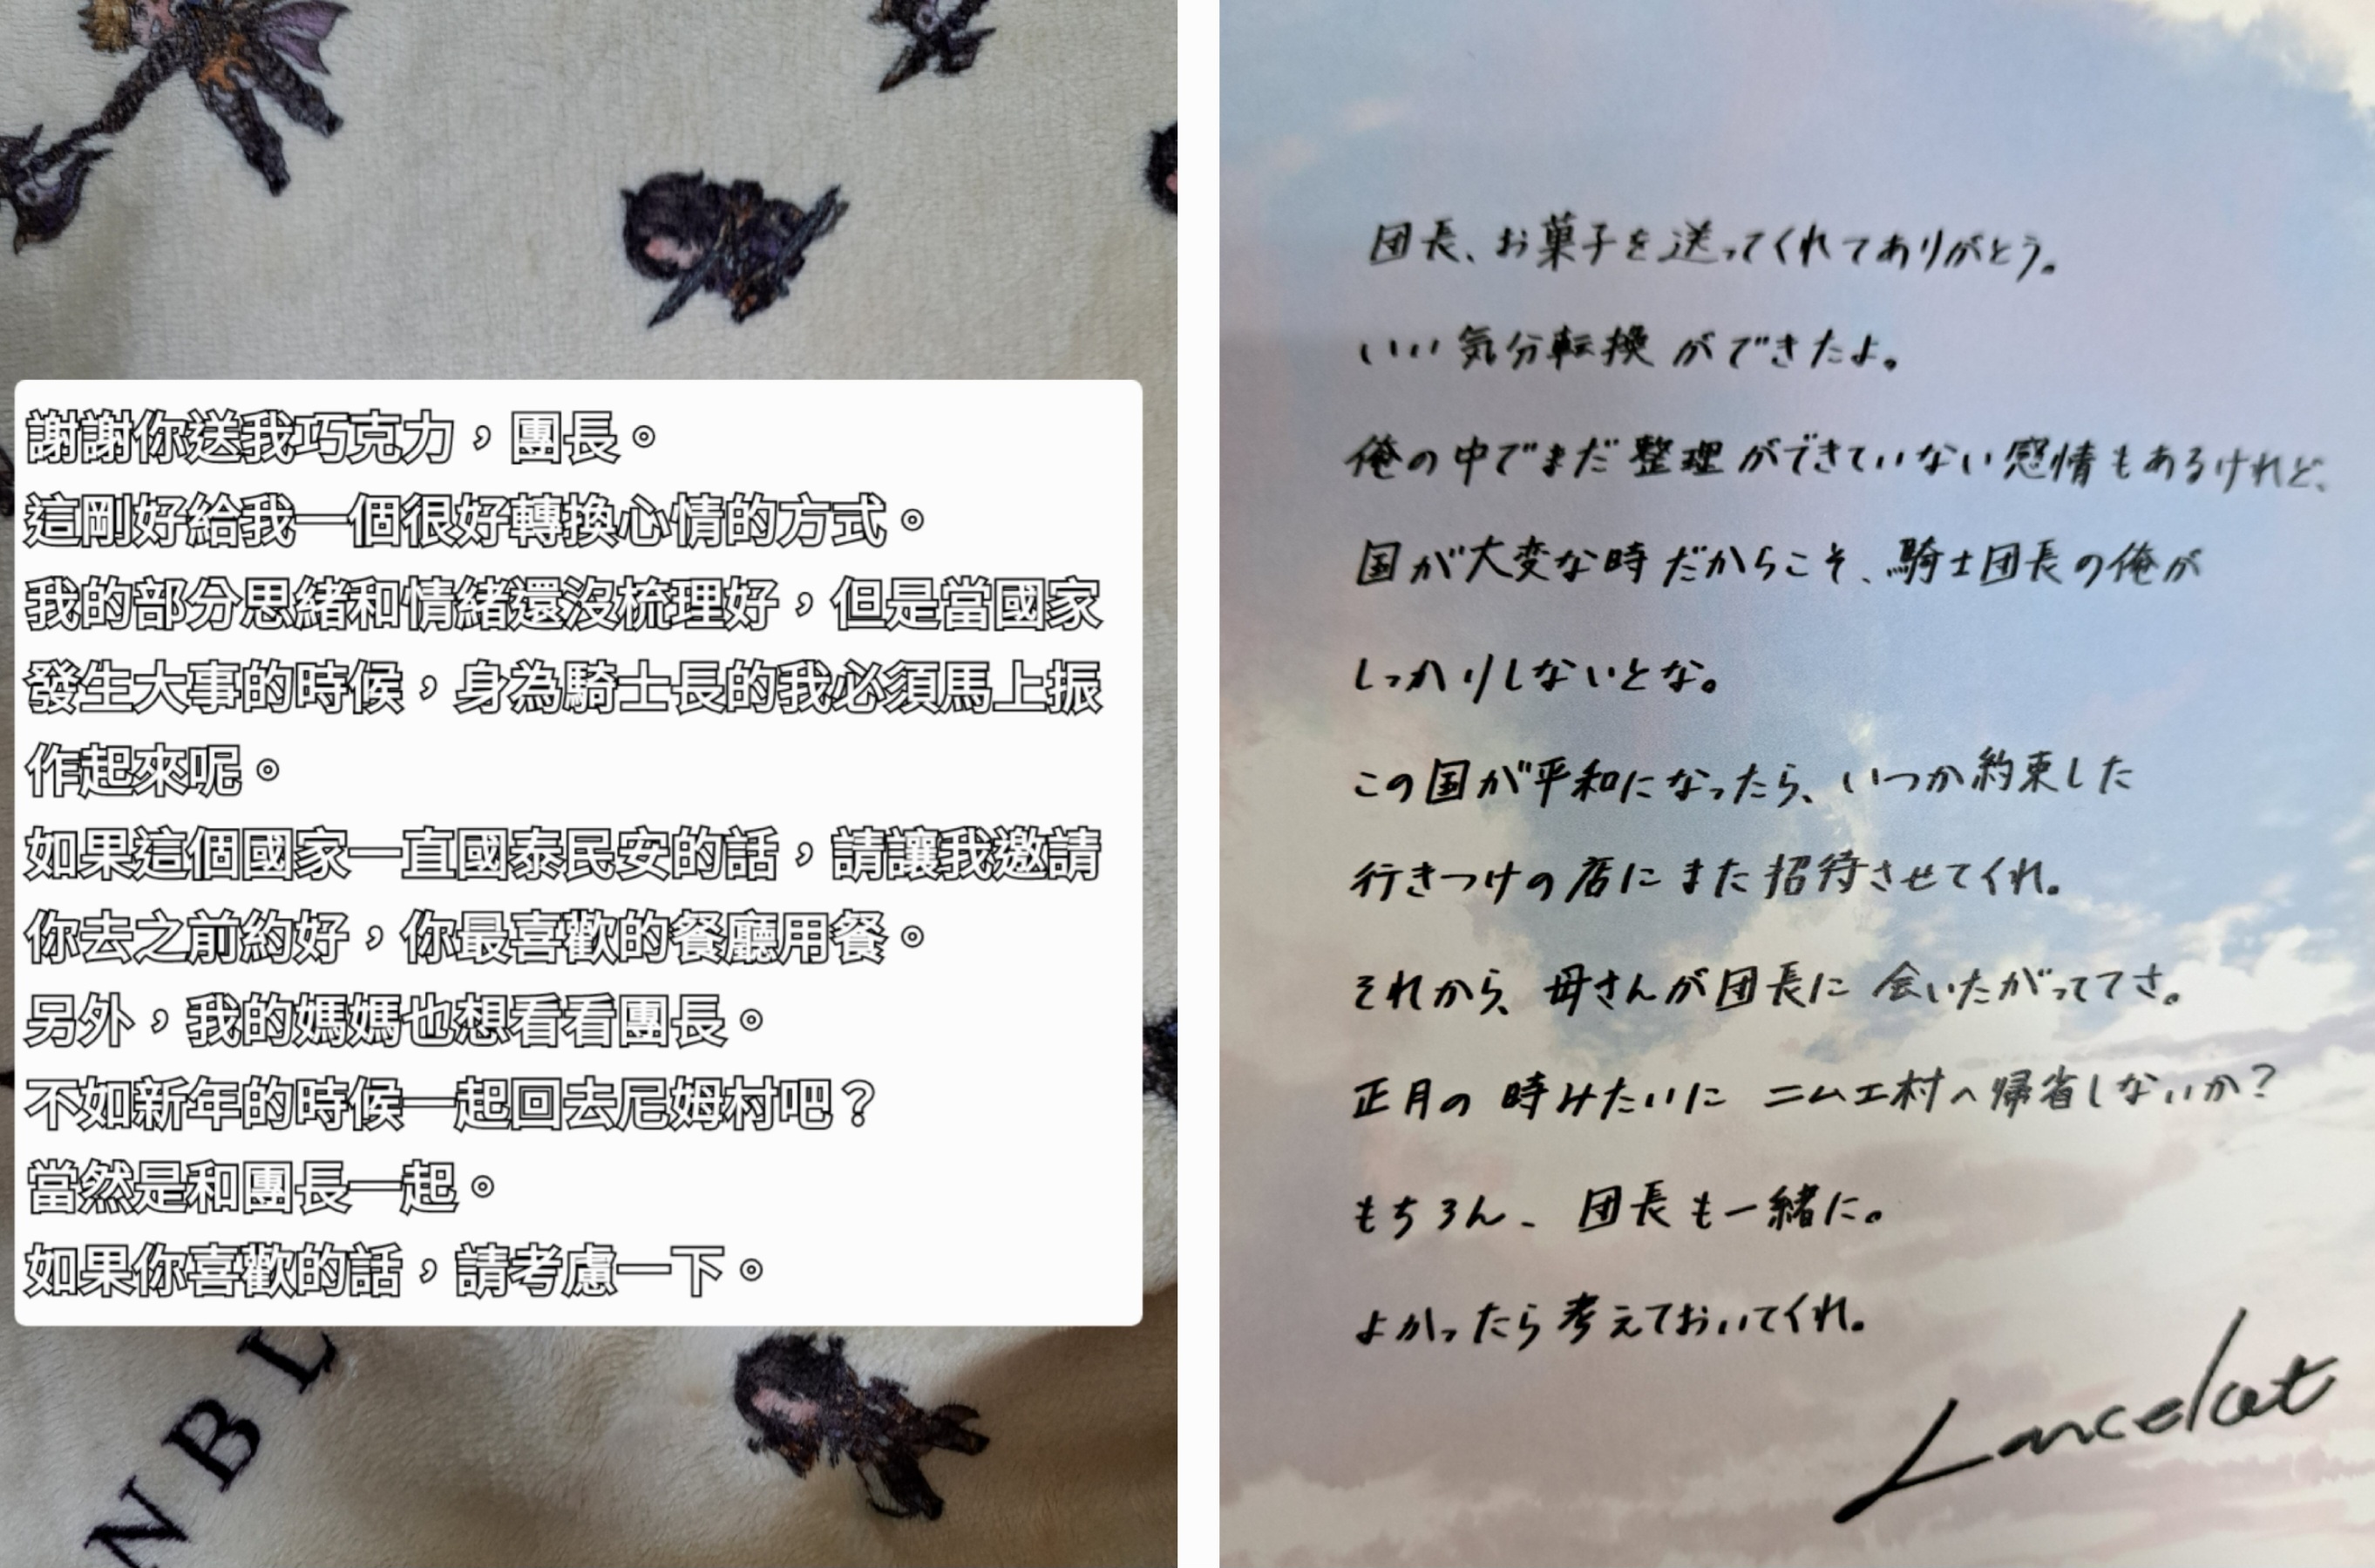 謝謝你送我巧克力，團長。
這剛好給我一個很好轉換心情的方式。
我的部分思緒和情緒還沒梳理好，但是當國家
發生大事的時候，身為騎士長的我必須馬上振
作起來呢。
如果這個國家一直國泰民安的話，請讓我邀請
你去之前約好，你最喜歡的餐廳用餐。
另外，我的媽媽也想看看團長。
不如新年的時候一起回去尼姆村吧？
當然是和團長一起。
如果你喜歡的話，請考慮一下。
NBL
団長、お菓子を送ってくれてありがとう。
いい気分転換ができたよ。
俺の中でまだ整理ができていない感情もあるけれど、
国が大変な時だからこそ、騎士団長の俺が
しっかりしないとな。
この国が平和になったら、いつか約束した
行きつけの店にまた招待させてくれ。
それから、母さんが団長に会いたがっててさ。
正月の時みたいにニムエ村へ帰省しないか？
もちろん、団長も一緒に。
よかったら考えておいてくれ。
Lancelot